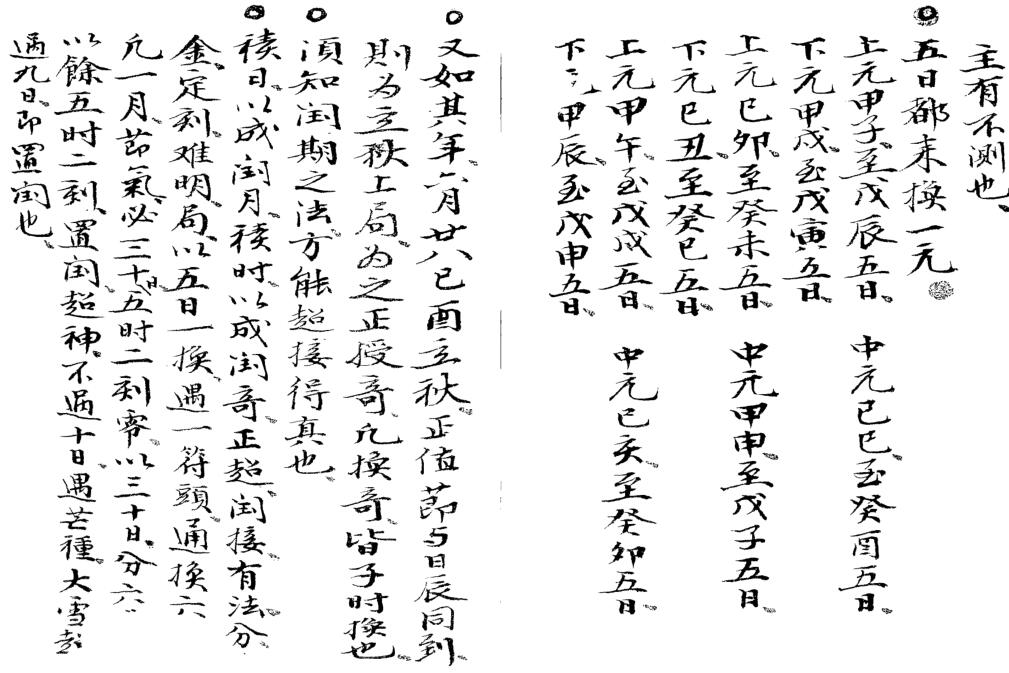 主有不测也
五日都来换一元
上元甲子至戊辰五日　中元己巳至癸酉五日
下元甲戌至戊寅五日
上元己卯至癸未五日　中元甲申至戊子五日
下元己丑至癸巳五日
上元甲午至戊戌五日　中元己亥至癸卯五日
下元甲辰至戊申五日
又如其年六月廿八己酉立秋正值节与日辰同到
则为立秋上局为之正授奇凡换奇皆子时换也
须知闰期之法方能超接得真也
积日以成闰月积时以成闰奇正超闰接有法分
金定刻难明局以五日一换遇一符頭通换六
凡一月节氣必三十日五时二刻零以三十日分六
以餘五时二刻置闰超神不过十日遇芒種大雪
過九日即置闰也